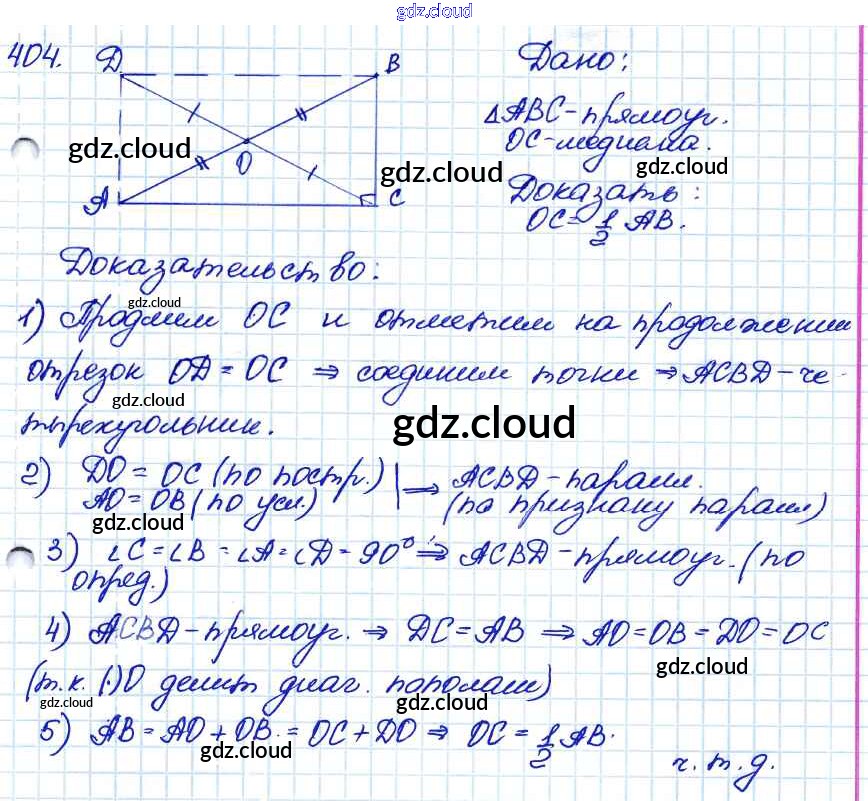 gdz.cloud
404.
D
B
O
A
C
gdz.cloud
gdz.cloud
Дано:
△ABC - прямоуг.
OC - медиана.
Доказать:
OC = 1/2 AB.
Доказательство:
gdz.cloud
1) Продлим OC и отметим на продолжении
отрезок OD = OC ⇒ соединим точки ⇒ ACBD - че-
gdz.cloud
тырехугольник.
gdz.cloud
2) DO = OC (по постр.) | ⇒ ACBD - паралл.
AO = OB (по усл.) (по признаку паралл)
gdz.cloud
3) ∠C = ∠B = ∠A = ∠D = 90° ⇒ ACBD - прямоуг. (по
опред.)
4) ACBD - прямоуг. ⇒ DC = AB ⇒ AO = OB = DO = OC
gdz.cloud
(т.к. (·)O делит диаг. пополам)
gdz.cloud
5) AB = AO + OB = OC + DO ⇒ OC = 1/2 AB.
gdz.cloud
gdz.cloud
ч.т.д.